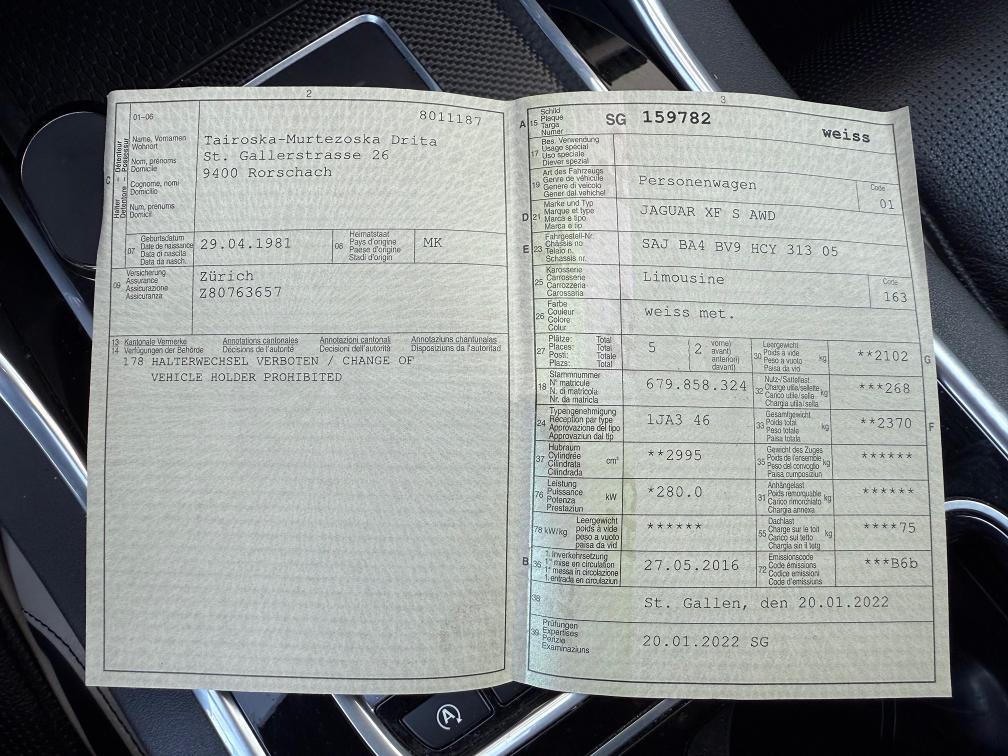 2
01–06
8011187
C
Halter Detenteur
Detentore Possessur
Name, Vornamen
Wohnort
Nom, prénoms
Domicile
Cognome, nomi
Domicilio
Num, prenums
Domicil
Tairoska-Murtezoska Drita
St. Gallerstrasse 26
9400 Rorschach
07
Geburtsdatum
Date de naissance
Data di nascita
Data da nasch.
29.04.1981
08
Heimatstaat
Pays d'origine
Paese d'origine
Stadi d'origin
MK
09
Versicherung
Assurance
Assicurazione
Assicuranza
Zürich
Z80763657
13 Kantonale Vermerke Annotations cantonales Annotazioni cantonali Annotaziuns chantunalas
14 Verfügungen der Behörde Décisions de l'autorité Decisioni dell'autorità Disposiziuns da l'autoritad
178 HALTERWECHSEL VERBOTEN / CHANGE OF
VEHICLE HOLDER PROHIBITED
3
A 15
Schild
Plaque
Targa
Numer
SG 159782
weiss
17
Bes. Verwendung
Usage spécial
Uso speciale
Diever spezial
19
Art des Fahrzeugs
Genre de véhicule
Genere di veicolo
Gener dal vehichel
Personenwagen
Code
01
D 21
Marke und Typ
Marque et type
Marca e tipo
Marca e tip
JAGUAR XF S AWD
E 23
Fahrgestell-Nr.
Châssis no
Telaio n.
Schassis nr.
SAJ BA4 BV9 HCY 313 05
25
Karosserie
Carrosserie
Carrozzeria
Carossaria
Limousine
Code
163
26
Farbe
Couleur
Colore
Colur
weiss met.
27
Plätze: Total
Places: Total
Posti: Totale
Plazs: Totale
5
2
vorne)
avant)
anteriori)
davant)
30
Leergewicht
Poids à vide
Peso a vuoto
Paisa da vid
kg
**2102
G
18
Stammnummer
N° matricule
N. di matricola
Nr. da matricla
679.858.324
32
Nutz-/Sattellast
Charge utile/sellette
Carico utile/sella
Chargia utila/sella
kg
***268
24
Typengenehmigung
Réception par type
Approvazione del tipo
Approvaziun dal tip
1JA3 46
33
Gesamtgewicht
Poids total
Peso totale
Paisa totala
kg
**2370
F
37
Hubraum
Cylindrée
Cilindrata
Cilindrada
cm³
**2995
35
Gewicht des Zuges
Poids de l'ensemble
Peso del convoglio
Paisa cumposiziun
kg
******
76
Leistung
Puissance
Potenza
Prestaziun
kW
*280.0
31
Anhängelast
Poids remorquable
Carico rimorchiato
Chargia annexa
kg
******
78 kW/kg
Leergewicht
poids à vide
peso a vuoto
paisa da vid
******
55
Dachlast
Charge sur le toit
Carico sul tetto
Chargia sin il tetg
kg
****75
B 36
1. Inverkehrsetzung
1re mise en circulation
1a messa in circolazione
1. entrada en circulaziun
27.05.2016
72
Emissionscode
Code émissions
Codice emissioni
Code d'emissiuns
***B6b
38
St. Gallen, den 20.01.2022
39
Prüfungen
Expertises
Perizie
Examinaziuns
20.01.2022 SG
A